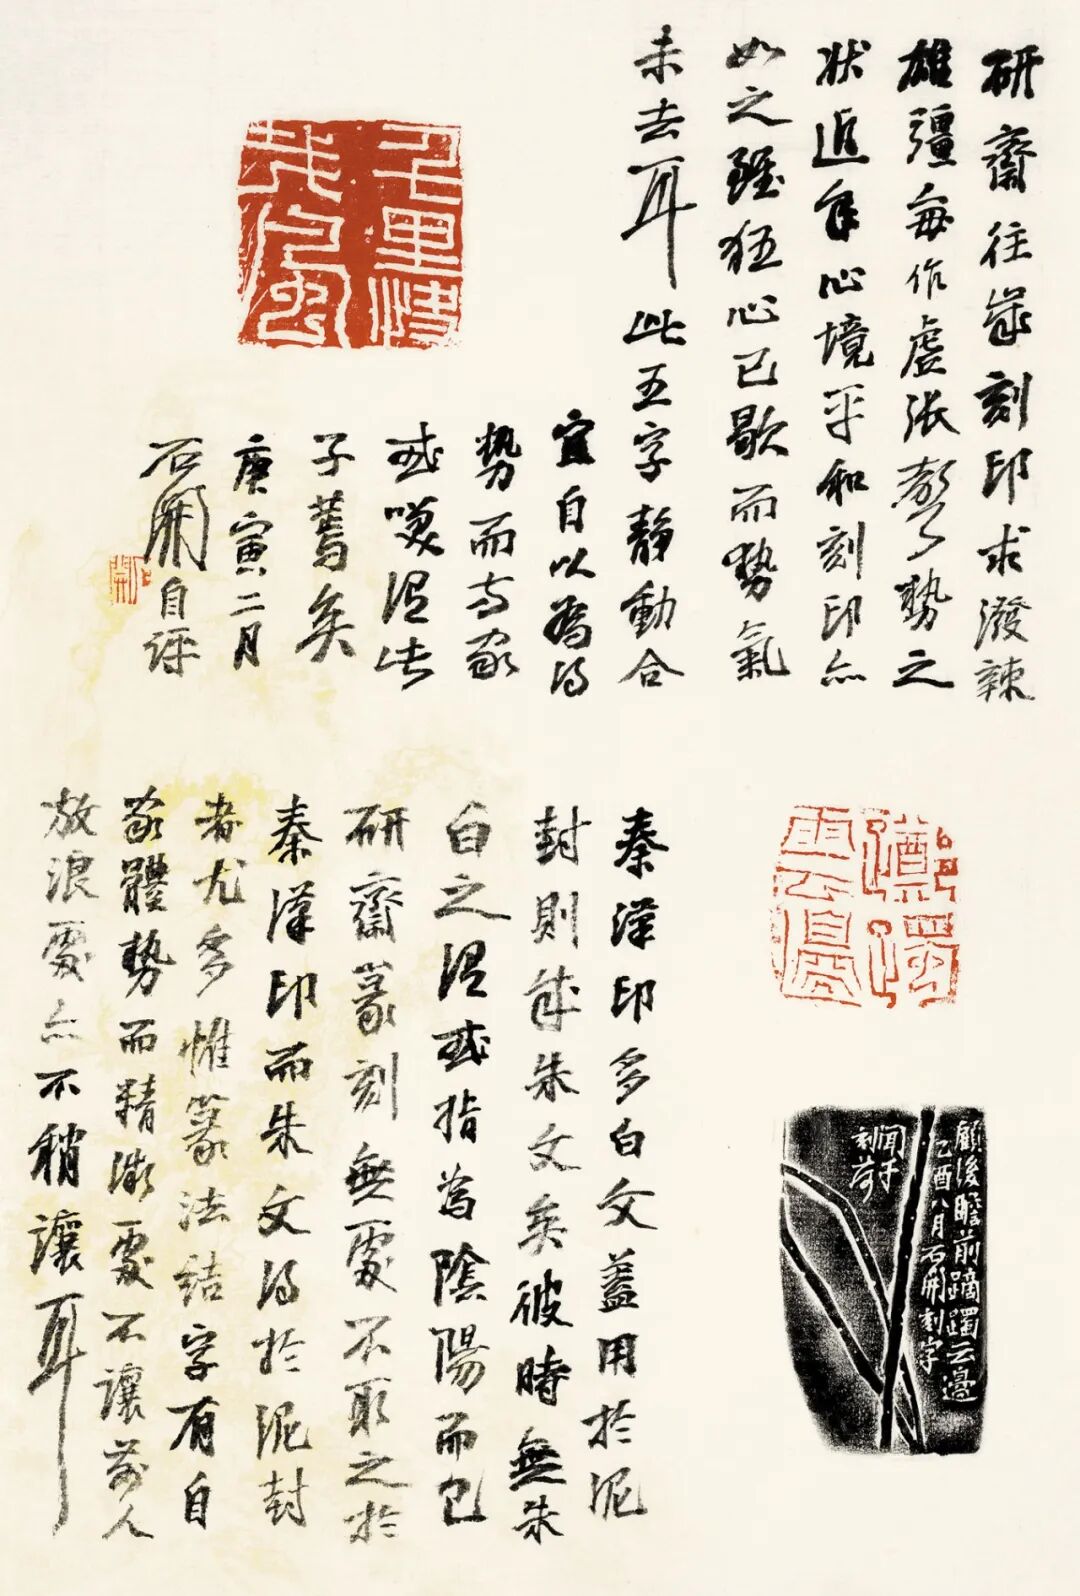 研齋往歲刻印求潑辣
雄彊每作虛張聲勢之
狀近年心境平和刻印亦
如之雖狂心已歇而勢氣
未去耳此五字靜動合
宜自以為得
勢而書家
或嘆渭告
子罵矣
庚寅二月
石開自評
千里快
哉風
秦漢印多白文蓋用於泥
封則成朱文矣彼時無朱
白之謂或指為陰陽而已
研齋篆刻無處不取之於
秦漢印而朱文得於泥封
者尤多惟篆法結字有自
家體勢而精微處不讓前人
放浪處亦不稍讓耳
躑躅
雲邊
顧後瞻前躑躅云邊
乙酉八月石開刻字
聞于
刻荷